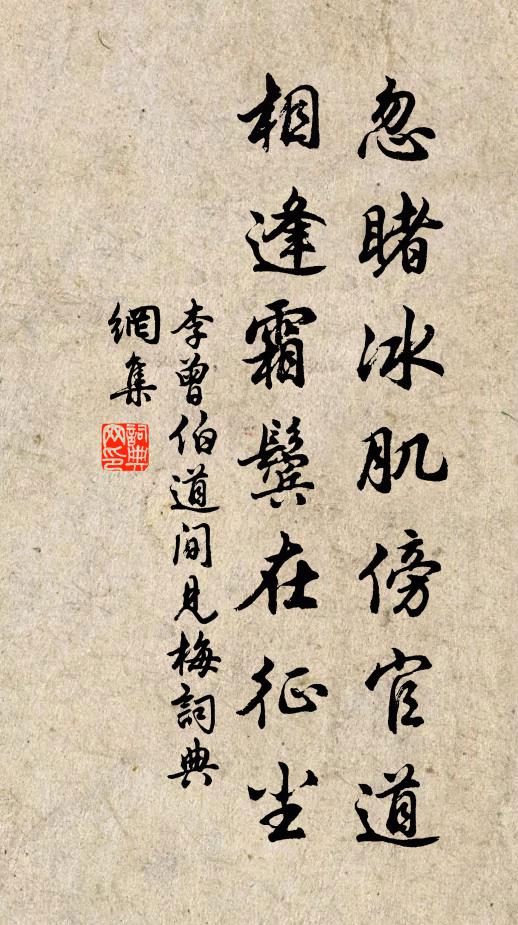 忽睹冰肌傍官道
相逢霜鬓在征尘
李曾伯道间见梅词典
網集
詞典
网印